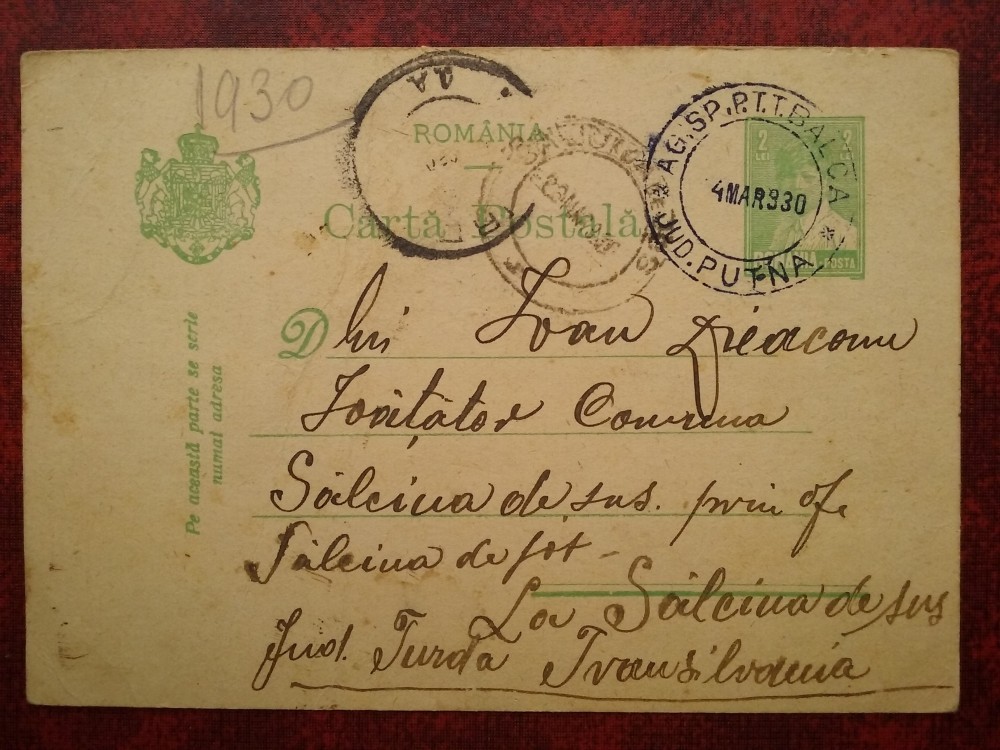 1930
ROMÂNIA
Carta Postală
2 LEI 2 LEI
POSTA
AG.SP.P.T.T.BALCA
4MAR930
JUD.PUTNA
Pe această parte se scrie
numai adresa
Dlui Ioan Dieaconu
Învățător Comuna
Sălciua de sus. prin of.
Sălciua de jos –
La Sălciua de sus
Jud. Turda Transilvania